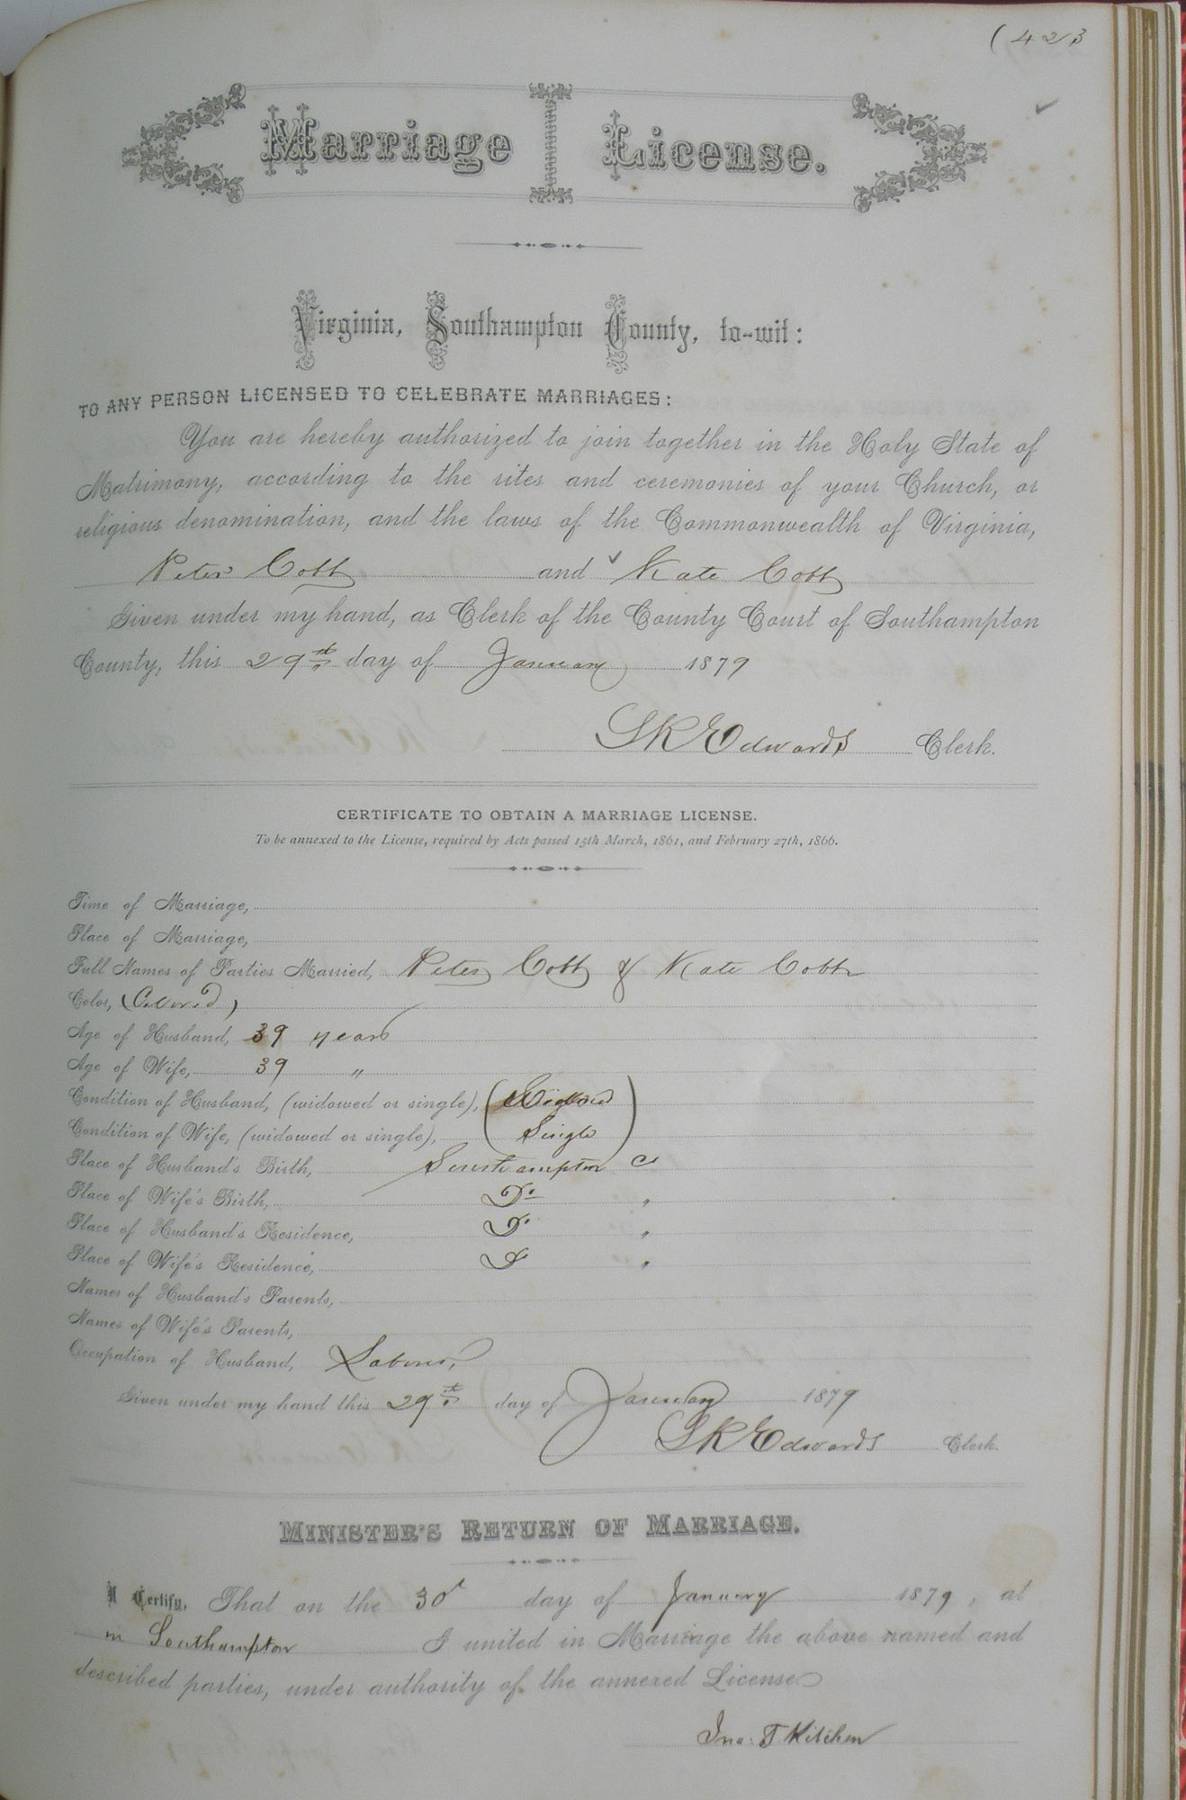 (423
Marriage License.
Virginia, Southampton County, to-wit:
TO ANY PERSON LICENSED TO CELEBRATE MARRIAGES:
You are hereby authorized to join together in the Holy State of
Matrimony, according to the rites and ceremonies of your Church, or
religious denomination, and the laws of the Commonwealth of Virginia,
Peter Cobb and Kate Cobb
Given under my hand, as Clerk of the County Court of Southampton
County, this 29th day of January 1879
LREdwards Clerk.
CERTIFICATE TO OBTAIN A MARRIAGE LICENSE.
To be annexed to the License, required by Acts passed 15th March, 1861, and February 27th, 1866.
Time of Marriage,
Place of Marriage,
Full Names of Parties Married, Peter Cobb & Kate Cobb
Color, (Colored)
Age of Husband, 39 years
Age of Wife, 39 "
Condition of Husband, (widowed or single), (Widowed
Condition of Wife, (widowed or single), Single)
Place of Husband's Birth, Southampton Co
Place of Wife's Birth, Do "
Place of Husband's Residence, Do "
Place of Wife's Residence, Do "
Names of Husband's Parents,
Names of Wife's Parents,
Occupation of Husband, Laborer,
Given under my hand this 29th day of January 1879
LREdwards Clerk.
MINISTER'S RETURN OF MARRIAGE.
I Certify, That on the 30th day of January 1879, at
in Southampton I united in Marriage the above named and
described parties, under authority of the annexed License
Jno. T Kitchen